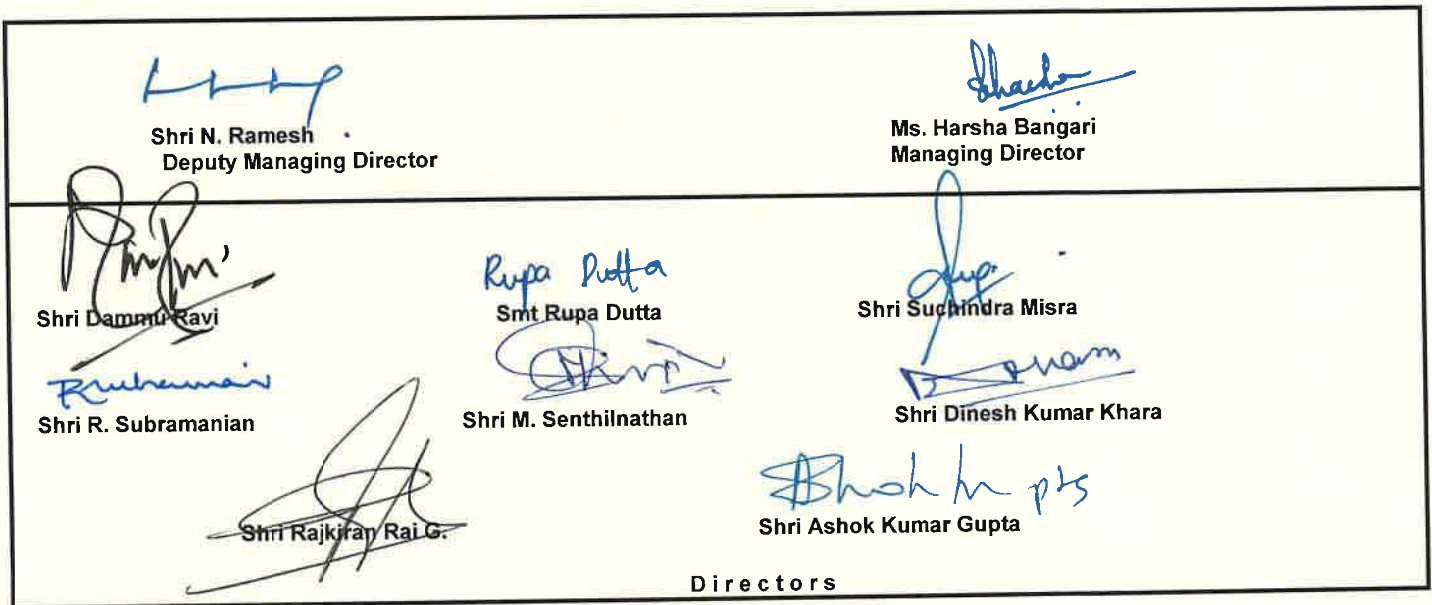 Shri N. Ramesh
Deputy Managing Director
Ms. Harsha Bangari
Managing Director
Rupa Dutta
Shri Dammu Ravi
Smt Rupa Dutta
Shri Suchindra Misra
Shri R. Subramanian
Shri M. Senthilnathan
Shri Dinesh Kumar Khara
Shri Rajkiran Rai G.
Shri Ashok Kumar Gupta
Directors